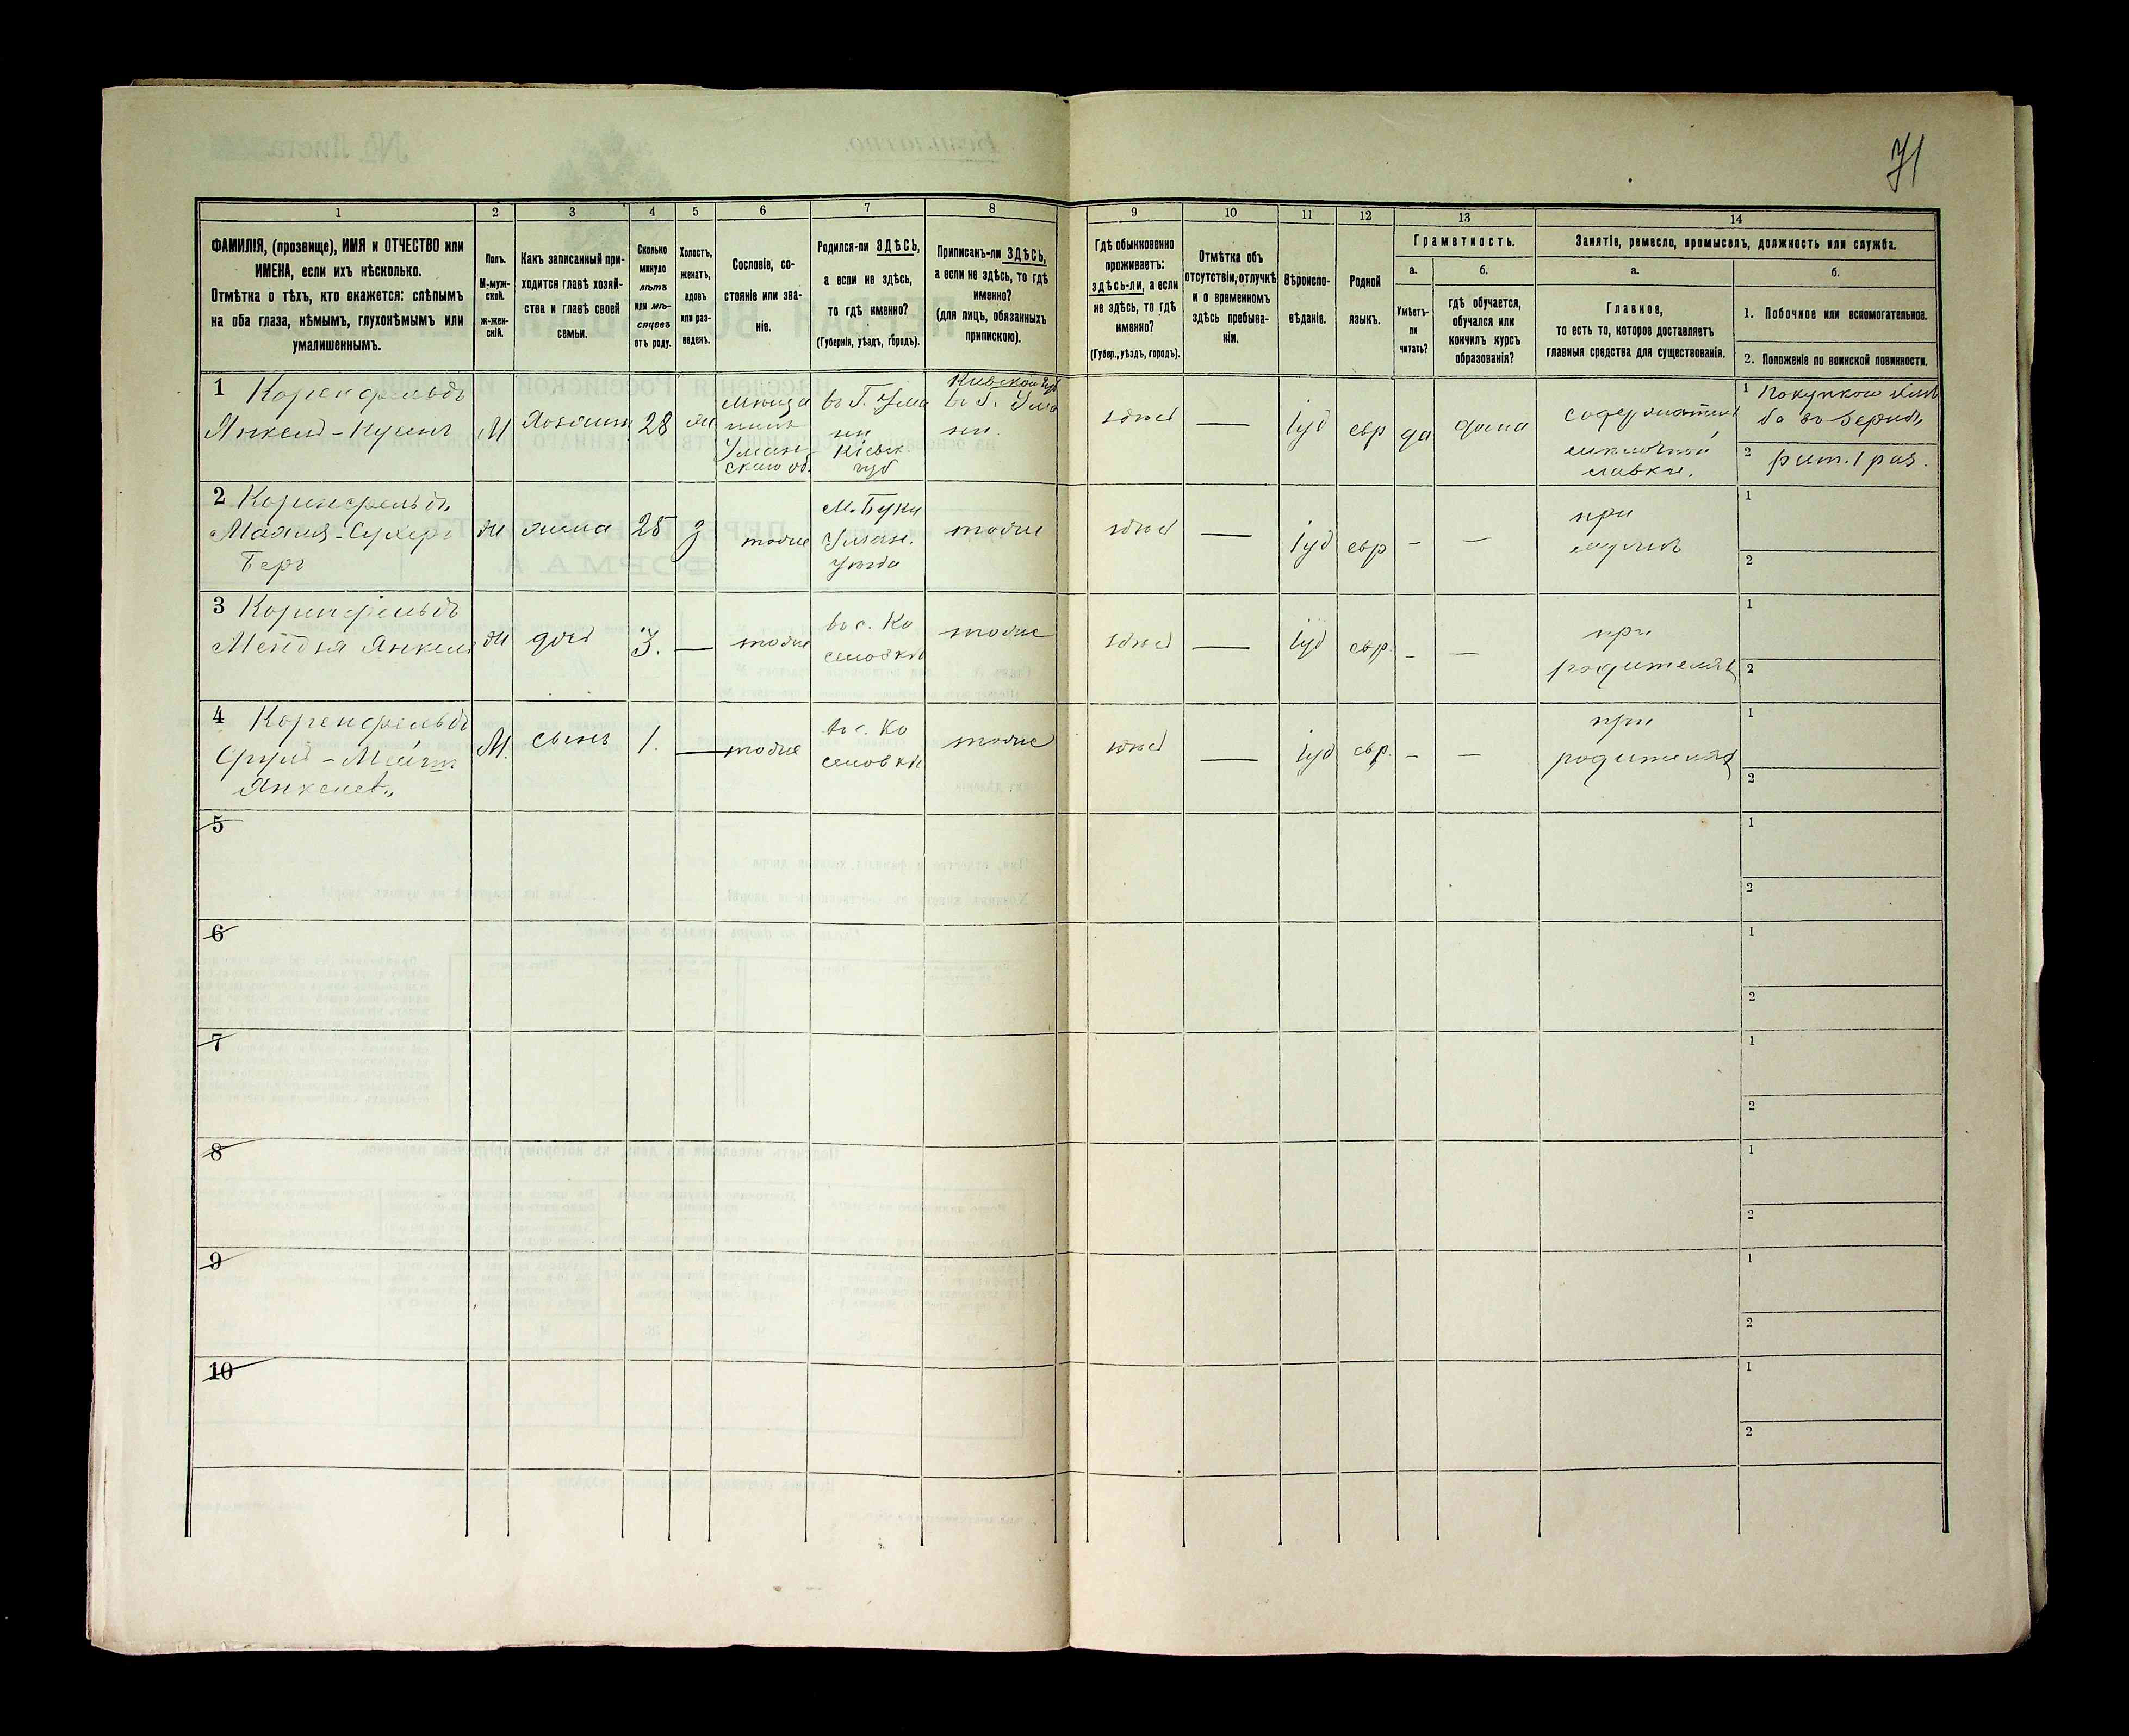 71
1 2 3 4 5 6 7 8 9 10 11 12 13 14
ФАМИЛІЯ, (прозвище), ИМЯ и ОТЧЕСТВО или
ИМЕНА, если ихъ нѣсколько.
Отмѣтка о тѣхъ, кто окажется: слѣпымъ
на оба глаза, нѣмымъ, глухонѣмымъ или
умалишеннымъ.
Полъ.
М-муж-
ской.
ж-жен-
скій.
Какъ записанный при-
ходится главѣ хозяй-
ства и главѣ своей
семьи.
Сколько
минуло
лѣтъ
или мѣ-
сяцевъ
отъ роду.
Холостъ,
женатъ,
вдовъ
или раз-
веденъ.
Сословіе, со-
стояніе или зва-
ніе.
Родился-ли ЗДѢСЬ,
а если не здѣсь,
то гдѣ именно?
(Губернія, уѣздъ, городъ).
Приписанъ-ли ЗДѢСЬ,
а если не здѣсь, то гдѣ
именно?
(для лицъ, обязанныхъ
припискою).
Гдѣ обыкновенно
проживаетъ:
здѣсь-ли, а если
не здѣсь, то гдѣ
именно?
(Губер., уѣздъ, городъ).
Отмѣтка объ
отсутствіи, отлучкѣ
и о временномъ
здѣсь пребыва-
ніи.
Вѣроиспо-
вѣданіе.
Родной
языкъ.
Грамотность.
а.
Умѣетъ-
ли
читать?
б.
гдѣ обучается,
обучался или
кончилъ курсъ
образованія?
Занятіе, ремесло, промыселъ, должность или служба.
а.
Главное,
то есть то, которое доставляетъ
главныя средства для существованія.
б.
1. Побочное или вспомогательное.
2. Положеніе по воинской повинности.
1 Коренфельдъ
Янкель-Кусель
М
Хозяинъ
28
Уман-
скаго об.
въ Г. Ума
ни
Кіевск.
губ
Кіевской губ
въ г. Ума
ни.
здѣсь
—
Іуд
евр
да
дома
мелочной
лавки.
1
въ зернѣ
2
2 Коренфельдъ
Беръ
ж
жена
25
з
тоже
М. Буки
Уман.
уѣзда
тоже
здѣсь
—
Іуд
евр
-
—
при
мужѣ
1
2
3 Коренфельдъ
ж
дочь
3.
—
тоже
въ с. Ко
тоже
здѣсь
—
Іуд
евр.
-
—
при
родителяхъ
1
2
4 Коренфельдъ
Сруль-
Янкелев.
М.
сынъ
1.
—
тоже
въ с. Ко
тоже
здѣсь
—
Іуд
евр.
-
—
при
родителяхъ
1
2
5
1
2
6
1
2
7
1
2
8
1
2
9
1
2
10
1
2